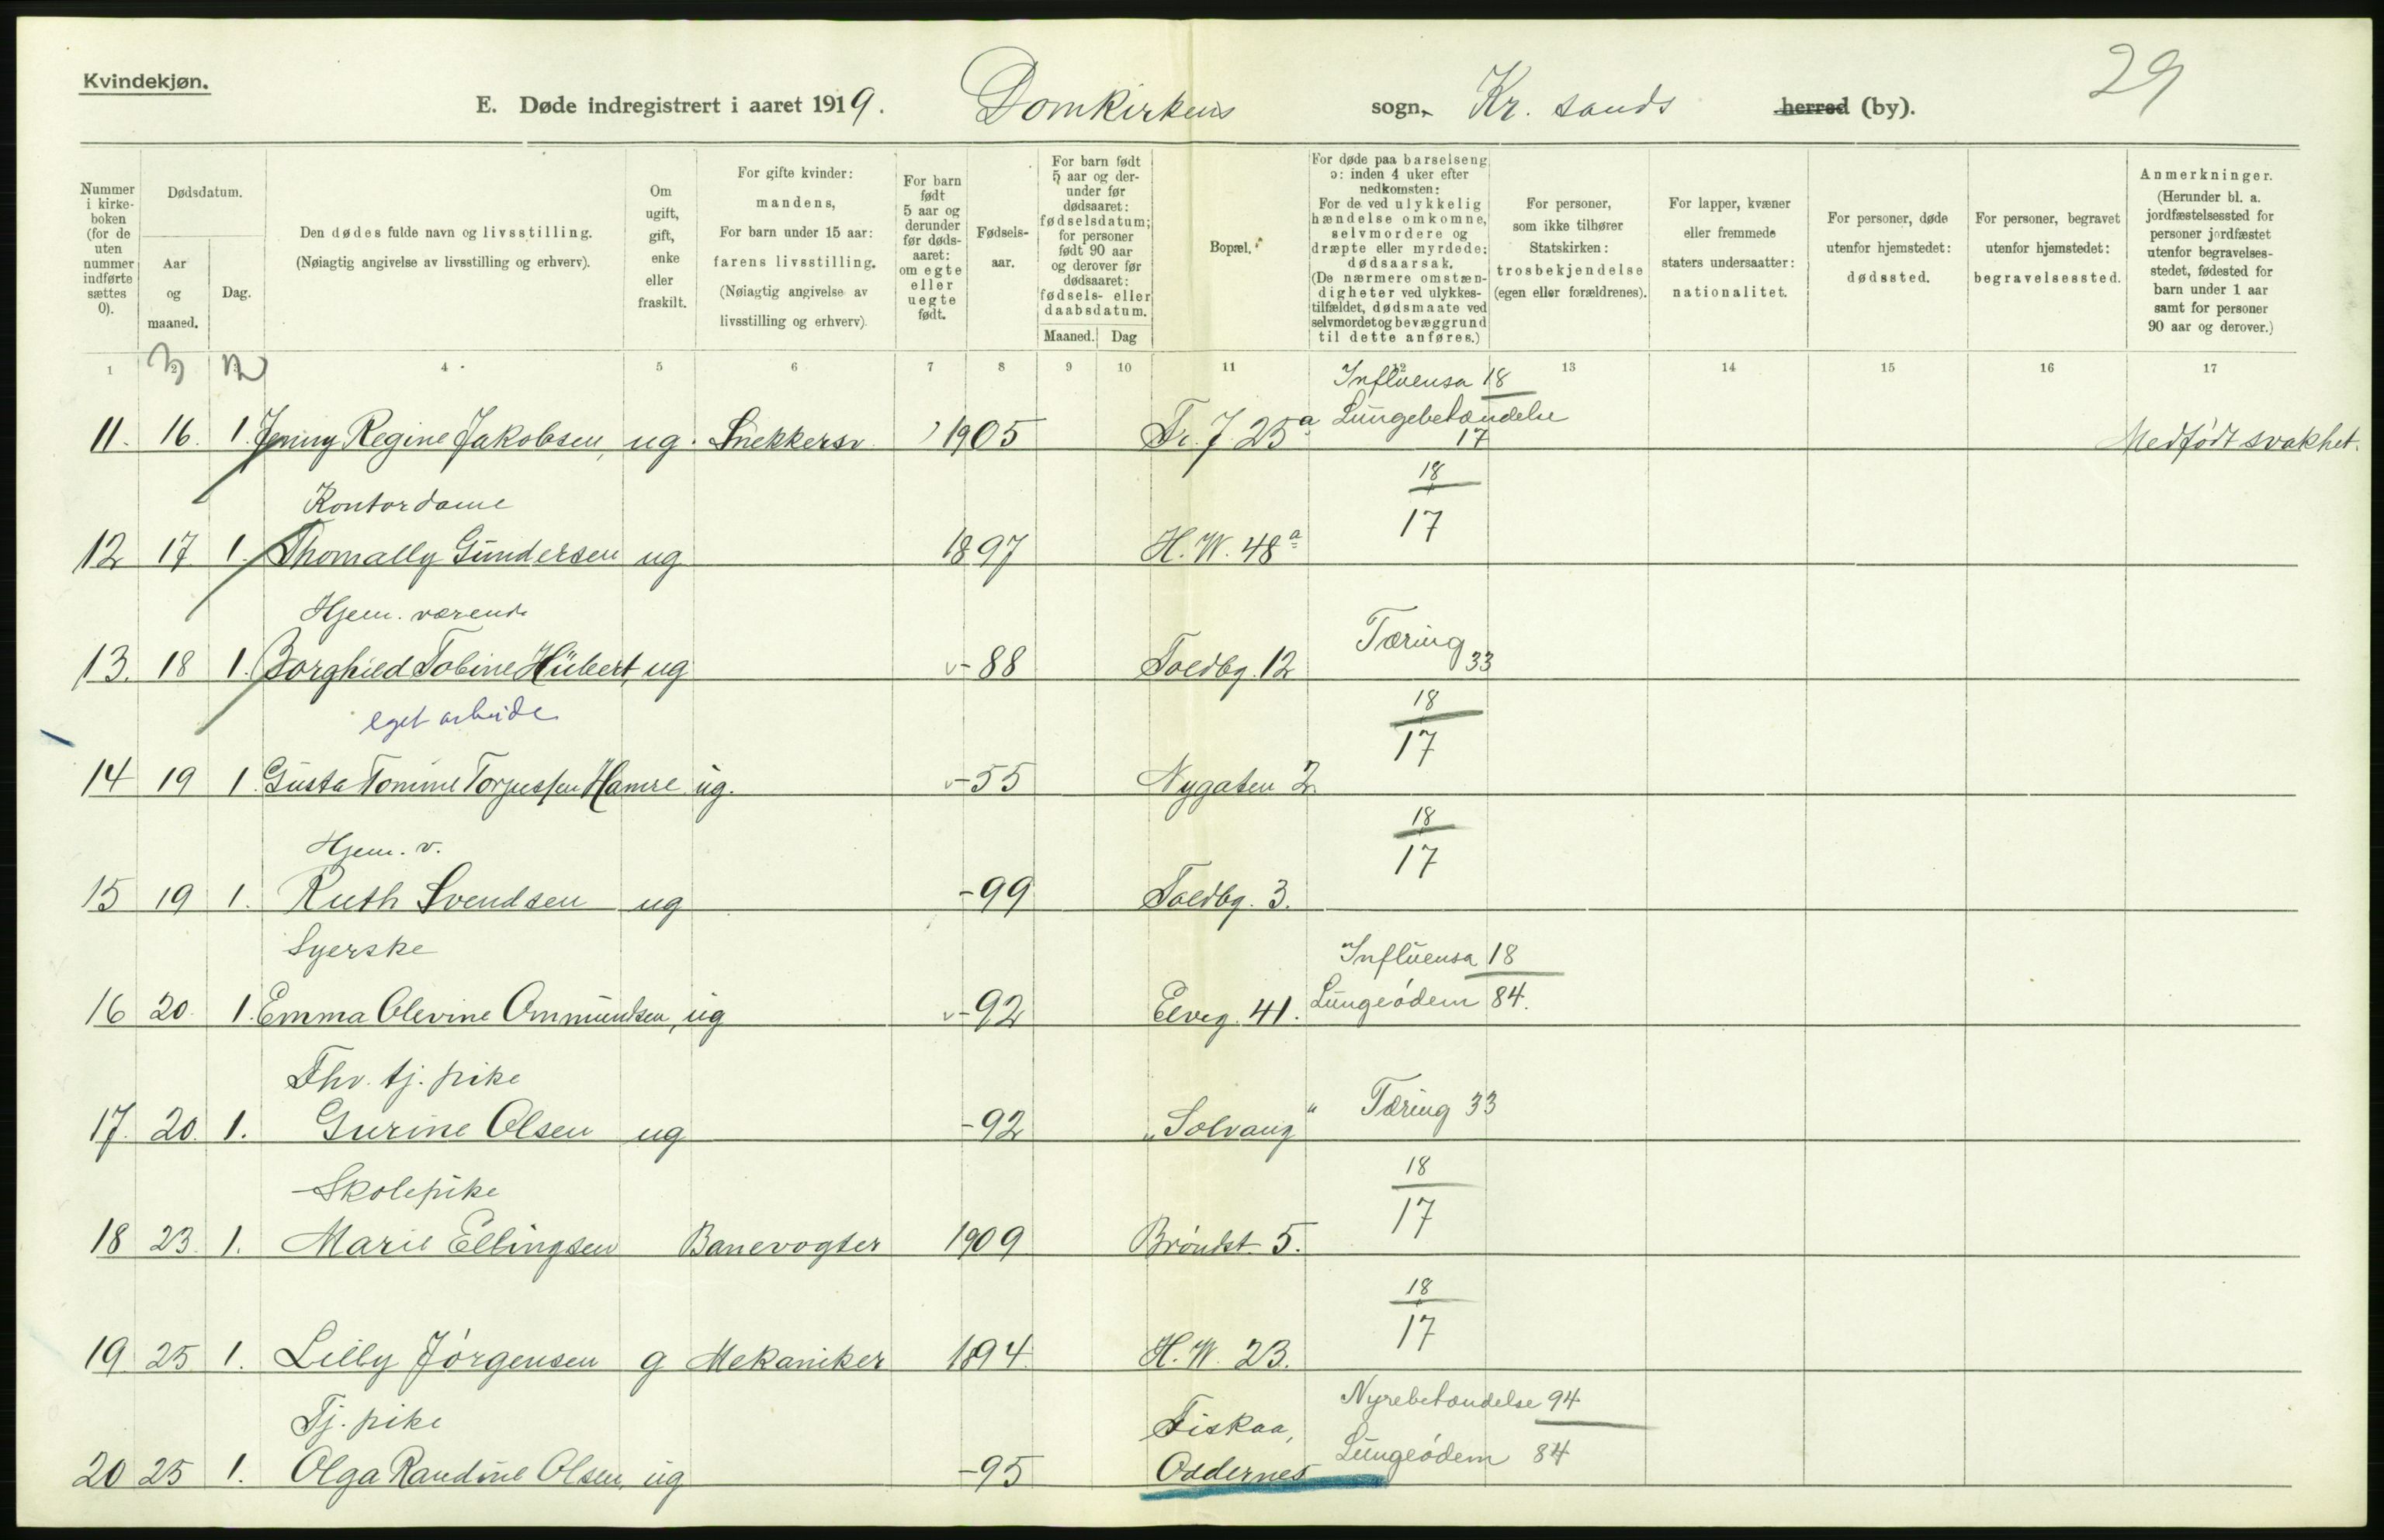 Kvindekjøn.
E. Døde indregistrert i aaret 1919. Domkirkens sogn, Kr. sands herred (by). 29
Nummer i kirke-boken (for de uten nummer indførte sættes 0).
Dødsdatum.
Aar og maaned.
Dag.
Den dødes fulde navn og livsstilling.
(Nøiagtig angivelse av livsstilling og erhverv).
Om ugift, gift, enke eller fraskilt.
For gifte kvinder: mandens,
For barn under 15 aar: farens livsstilling.
(Nøiagtig angivelse av livsstilling og erhverv).
For barn født 5 aar og derunder før døds-aaret: om egte eller uegte født.
Fødsels-aar.
For barn født 5 aar og der-under før dødsaaret: fødselsdatum; for personer født 90 aar og derover før dødsaaret: fødsels- eller daabsdatum.
Maaned. Dag
Bopæl.
For døde paa barselseng ɔ: inden 4 uker efter nedkomsten:
For de ved ulykkelig hændelse omkomne, selvmordere og dræpte eller myrdede: dødsaarsak.
(De nærmere omstæn-digheter ved ulykkes-tilfældet, dødsmaate ved selvmordet og bevæggrund til dette anføres.)
For personer, som ikke tilhører Statskirken: trosbekjendelse (egen eller forældrenes).
For lapper, kvæner eller fremmede staters undersaatter: nationalitet.
For personer, døde utenfor hjemstedet: dødssted.
For personer, begravet utenfor hjemstedet: begravelsessted.
Anmerkninger.
(Herunder bl. a. jordfæstelsessted for personer jordfæstet utenfor begravelses-stedet, fødested for barn under 1 aar samt for personer 90 aar og derover.)
1 2 4 5 6 7 8 9 10 11 12 13 14 15 16 17
Influensa 18
Lungebetændelse
11. 16. 1. Jenny Regine Jakobsen, ug. Snekkersv. 1905 Fr. 7. 25a 17 Medfødt svakhet.
Kontordame 18
12 17 1. Thomally Gundersen ug 1897 H. W. 48a 17
Hjem. værende
13. 18 1. Borghild Tobine Hübert, ug - 88 Toldbg. 12 Tæring 33
eget arbeide 18
14 19 1. Gusta Tomine Torjussen Hamre ug. - 55 Nygaten 2 17
Hjem. v. 18
15 19 1. Ruth Svendsen ug - 99 Toldbg. 3. 17
Syerske Influensa 18
16 20. 1. Emma Olevine Ommundsen, ug - 92 Elveg. 41. Lungeødem 84.
Fhv. tj. pike
17. 20. 1. Gurine Olsen ug - 92 "Solvang" Tæring 33
Skolepike 18
18 23. 1. Marie Ellingsen Banevogter 1909 Brøndst. 5. 17
18
19. 25. 1. Lilly Jørgensen g Mekaniker 1894. H. W. 23. 17
Tj. pike Fiskaa, Nyrebetændelse 94
20 25 1. Olga Randine Olsen, ug - 95 Oddernes Lungeødem 84